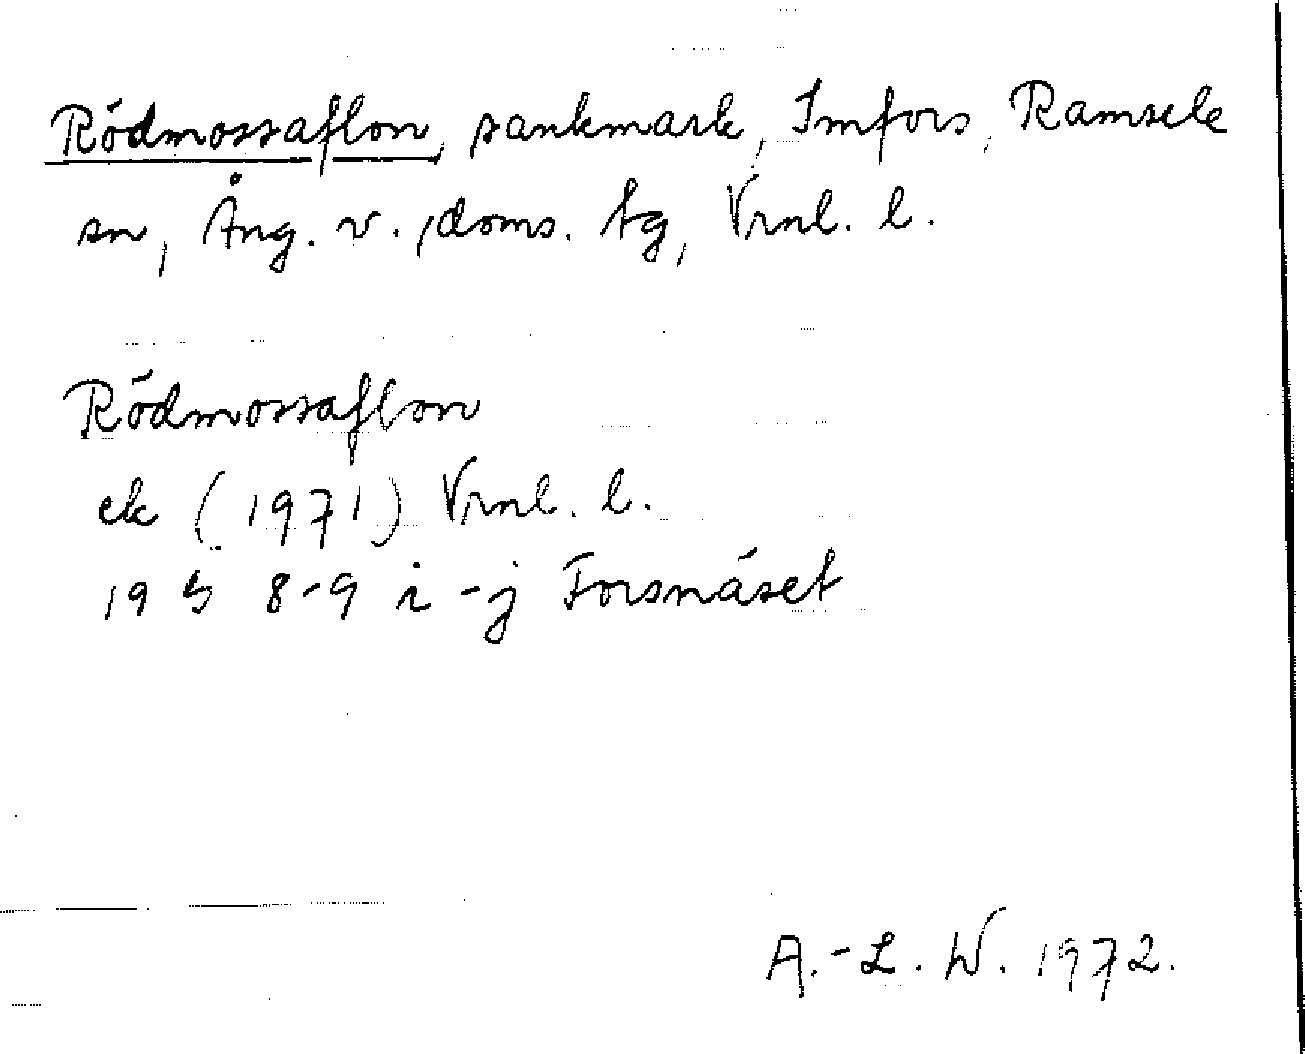 Rödmossaflon, sankmark, Imfors, Ramsele
sn, Ång. v. doms. tg, Vrnl. l.
Rödmossaflon
ek (1971) Vrnl. l.
19 G 8-9 i-j Forsnäset
A.-L. W. 1972.